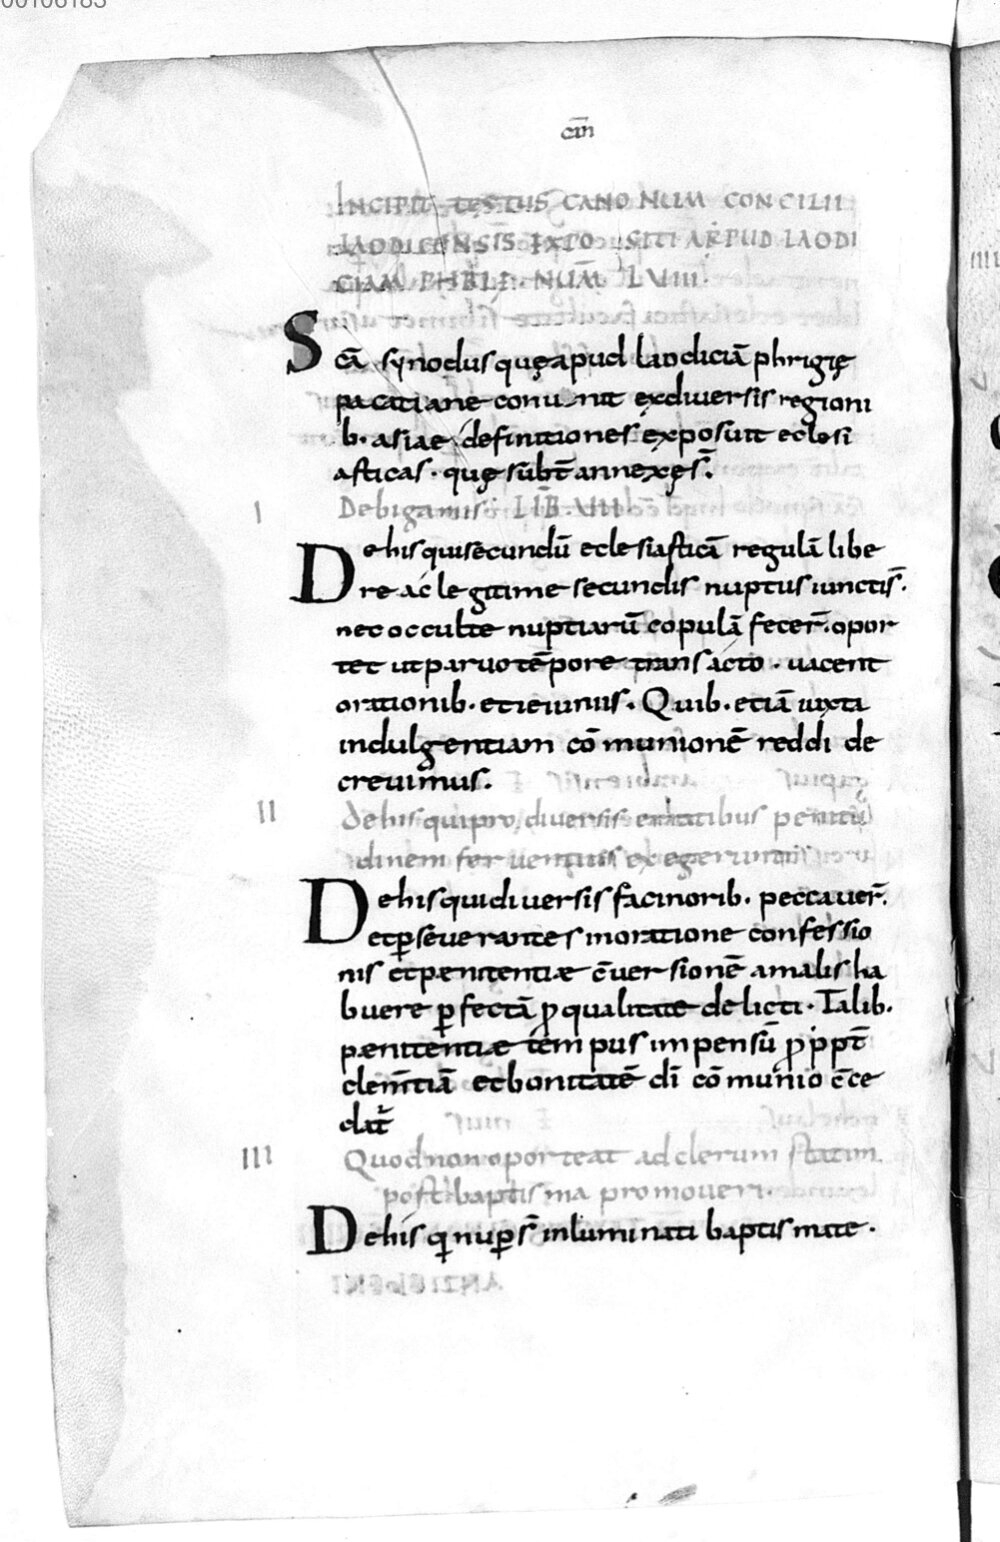 cā̄n
INCIPIT TESTUS CANONUM CONCILII
LAODICENSIS EXPOSITI APUD LAODI
CIAM NUM̄ LVIIII
Scā synodus quę apud laodiciā phrigię
pacatiane conuenit ex diuersis regioni
b· asiae definitiones exposuit eclesi
asticas· quę sūbt̄ annexęs̄·
I De bigamis· LIB· VII
De his qui secundū eclesiasticā regulā libe
re ac legitime secundis nuptus iunctis̄·
nec occulte nuptiarū copulā fecer̄· opor
tet ut paruo tēpore transacto· uacent
orationib· et ieiuniis· Quib· etiā iuxta
indulgentiam cōmunionē reddi de
creuimus·
II De his qui pro diuersis penitu
dinem feruentius exegerunt
De his qui diuersis facinorib· peccauer̄·
et ꝑseuerantes in oratione confessio
nis et pænitentiæ c̄uersionē a malis ha
buere ꝑfectā ꝓ qualitate delicti· Talib·
pænitentiæ tempus impensū ꝓppt̄
clem̄tiā et bonitatē dī cōmunio c̄ce
dat̄
III Quod non oporteat ad clerum statim
post baptisma promoueri·
De his qi nuꝑ s̄ inluminati baptismate·